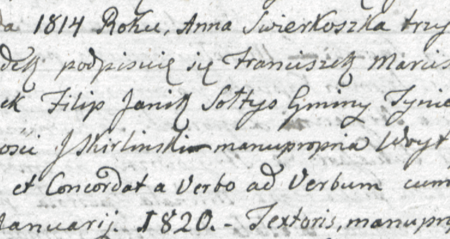 a 1814 Roku, Anna Swierkoszka trzy
podpisuię się Franciszek Marcis
ek Filip Janik Sołtys Gminy Tynie
ości J Skirlinski manupropria
et Concordat a Verbo ad Verbum cum
Januarij. 1820. - Textoris, manupr